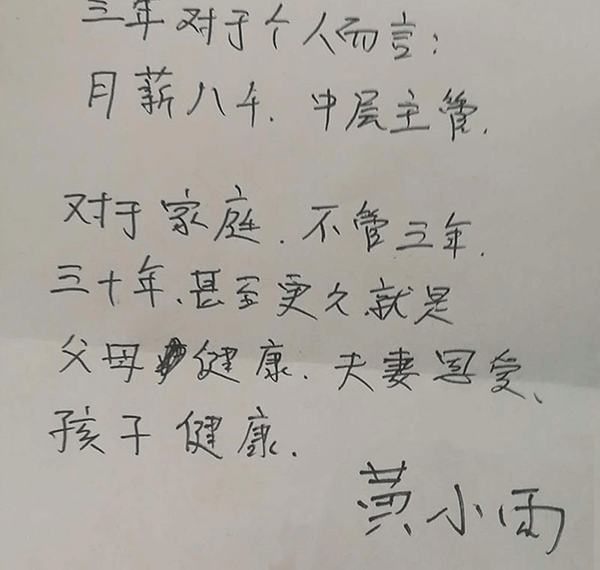 三年对于个人而言:
月薪八千. 中层主管.
对于家庭. 不管三年.
三十年、甚至更久.就是
父母健康. 夫妻恩爱、
孩子健康.
黄小雨